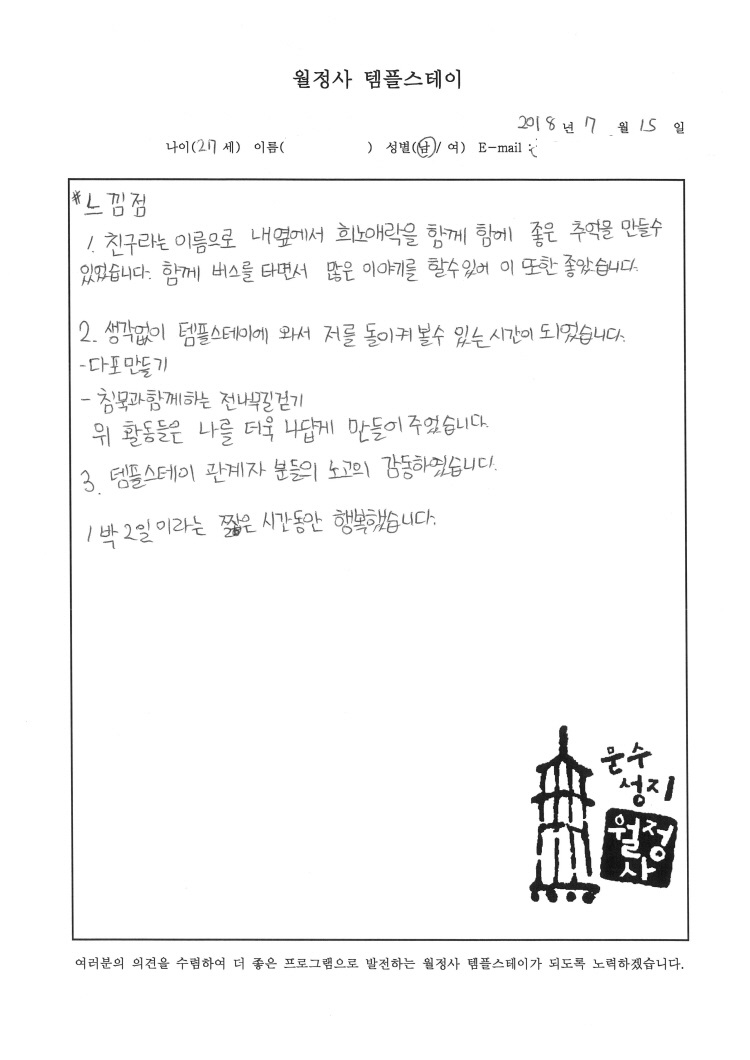 월정사 템플스테이
2018 년 7 월 15 일
나이(27 세) 이름( ) 성별(남/ 여) E-mail :
*느낌점
1. 친구라는 이름으로 내옆에서 희노애락을 함께 함에 좋은 추억물 만들수
있었습니다. 함께 버스를 타면서 많은 이야기를 할수있어 이 또한 좋았습니다.
2. 생각없이 템플스테이에 와서 저를 돌이켜 볼수 있는 시간이 되었습니다.
-다포만들기
- 침묵과함께하는 전나무길걷기
위 활동들은 나를 더욱 나답게 만들어 주었습니다.
3. 템플스테이 관계자 분들의 노고의 감동하였습니다.
1박 2일이라는 짧은 시간동안 행복했습니다.
문수
성지
월정
사
여러분의 의견을 수렴하여 더 좋은 프로그램으로 발전하는 월정사 템플스테이가 되도록 노력하겠습니다.